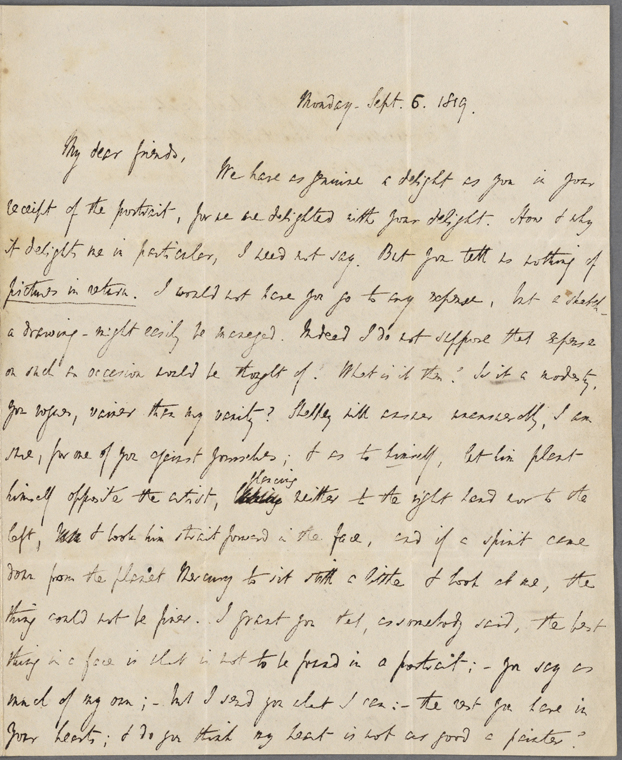 Monday - Sept. 6. 1819.
My dear friends,
We have as genuine a delight as you in your
receipt of the portrait, for we are delighted with your delight. How & why
it delights me in particular, I need not say. But you tell us nothing of
pictures in return. I would not have you go to any expense, but a sketch -
a drawing - might easily be managed. Indeed I do not suppose that expense
on such an occasion would be thought of. What is it then? Is it a modesty,
you rogues, vainer than my vanity? Shelley will answer unanswerably, I am
sure, for one of you against yourselves; & as to himself, let him plant
himself opposite the artist, glancing neither to the right hand nor to the
left, & look him strait forward in the face, and if a spirit came
down from the planet Mercury to sit still a little & look at me, the
thing could not be finer. I grant you that, as somebody said, the best
thing in a face is that is not to be found in a portrait; - you say as
much of my own; - but I send you what I can: - the rest you have in
your hearts; & do you think my heart is not as good a painter?